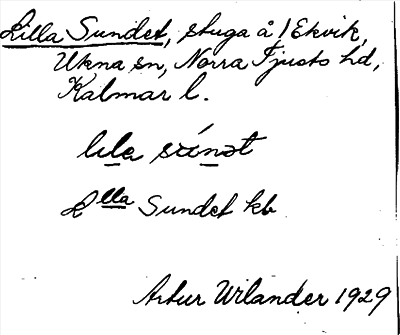 Lilla Sundet, stuga å ! Ekvik,
Ukna sn, Norra Tjusts hd,
Kalmar l.
lıla
Lilla Sundet kb
Artur Wilander 1929